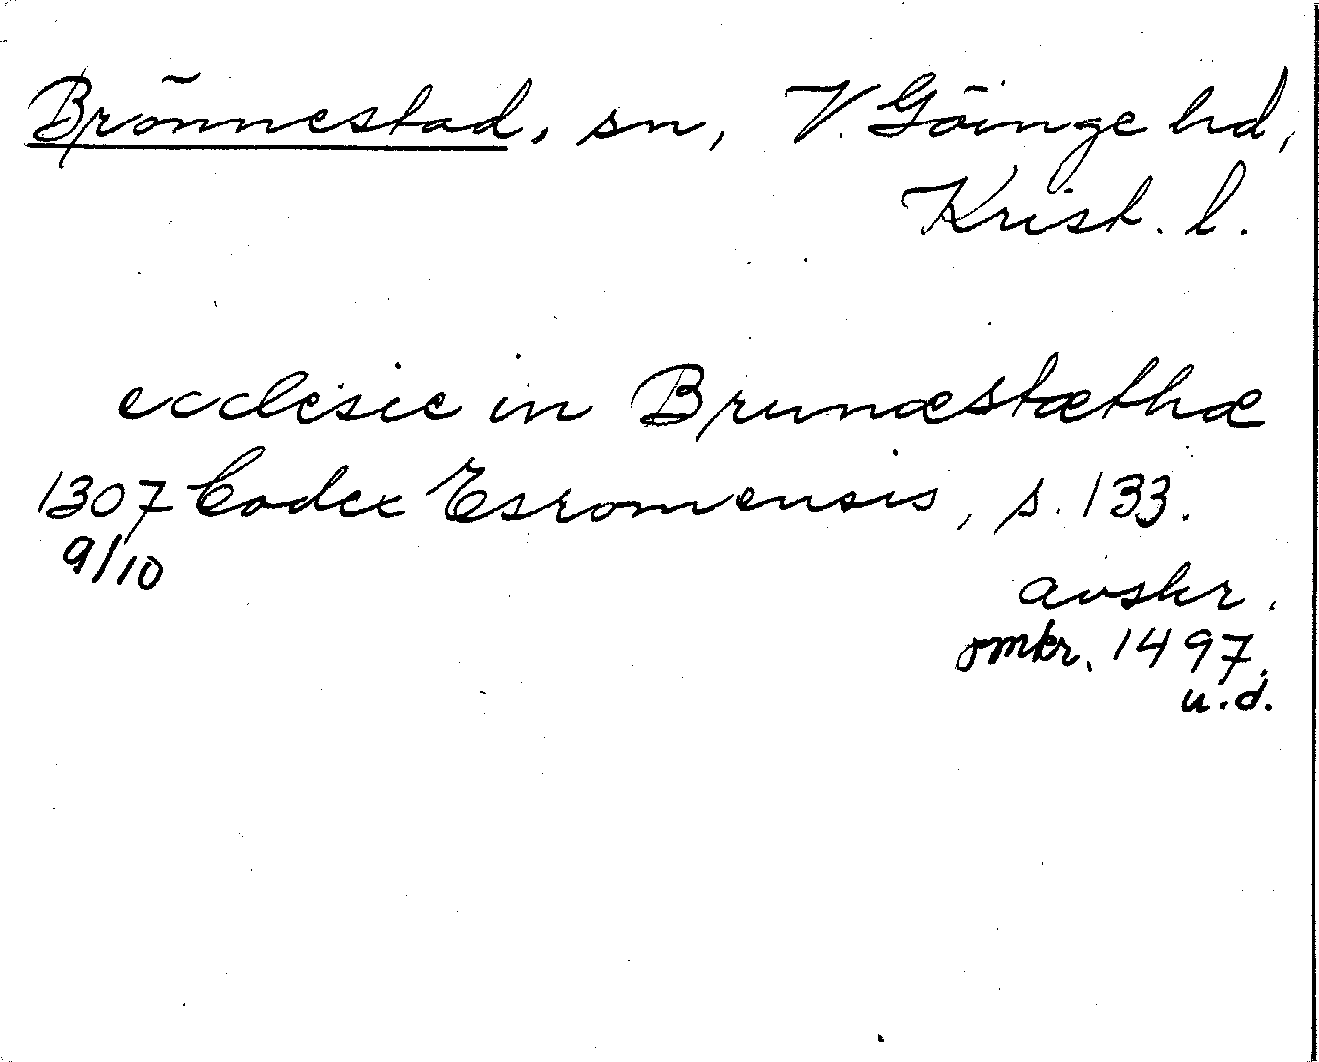 Brönnestad, sn, V. Göinge hd,
Krist. l.
ecclesie in Brunæstæthæ
1307 Codex Esromensis, s. 133.
9/10
avskr.
omkr. 1497.
u.d.